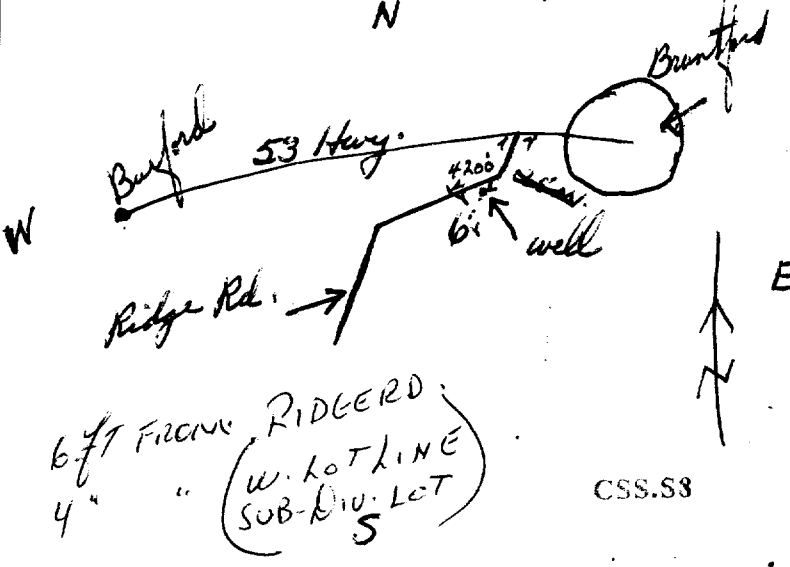 N
Brantford
Burford
53 Hwy.
4200'
W
6'
well
E
Ridge Rd.
N
6 FT FROM RIDGE RD.
4 " " (W. LOT LINE
SUB-DIV. LOT
5)
CSS.S8